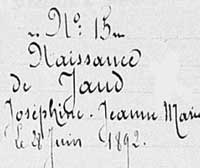 „ N° 15 „
Naissance
de Jaud
Joséphine - Jeanne Marie
le 28 Juin 1892.